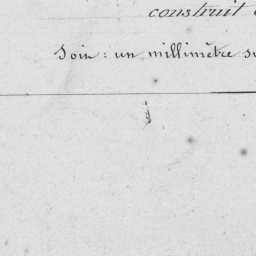 construit
Soin : un millimètre